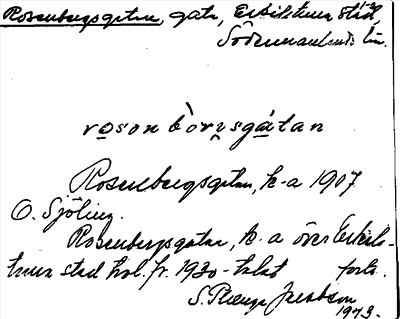 Rosenbergsgatan, gata, Eskilstuna stad,
Södermanlands län.
rosonbòrisgátan
Rosenbergsgatan, k-a 1907
O. Sjöling.
Rosenbergsgatan, k-a över Eskils-
tuna stad fr. 1930-talet forts.
S. Jacobson
1973.